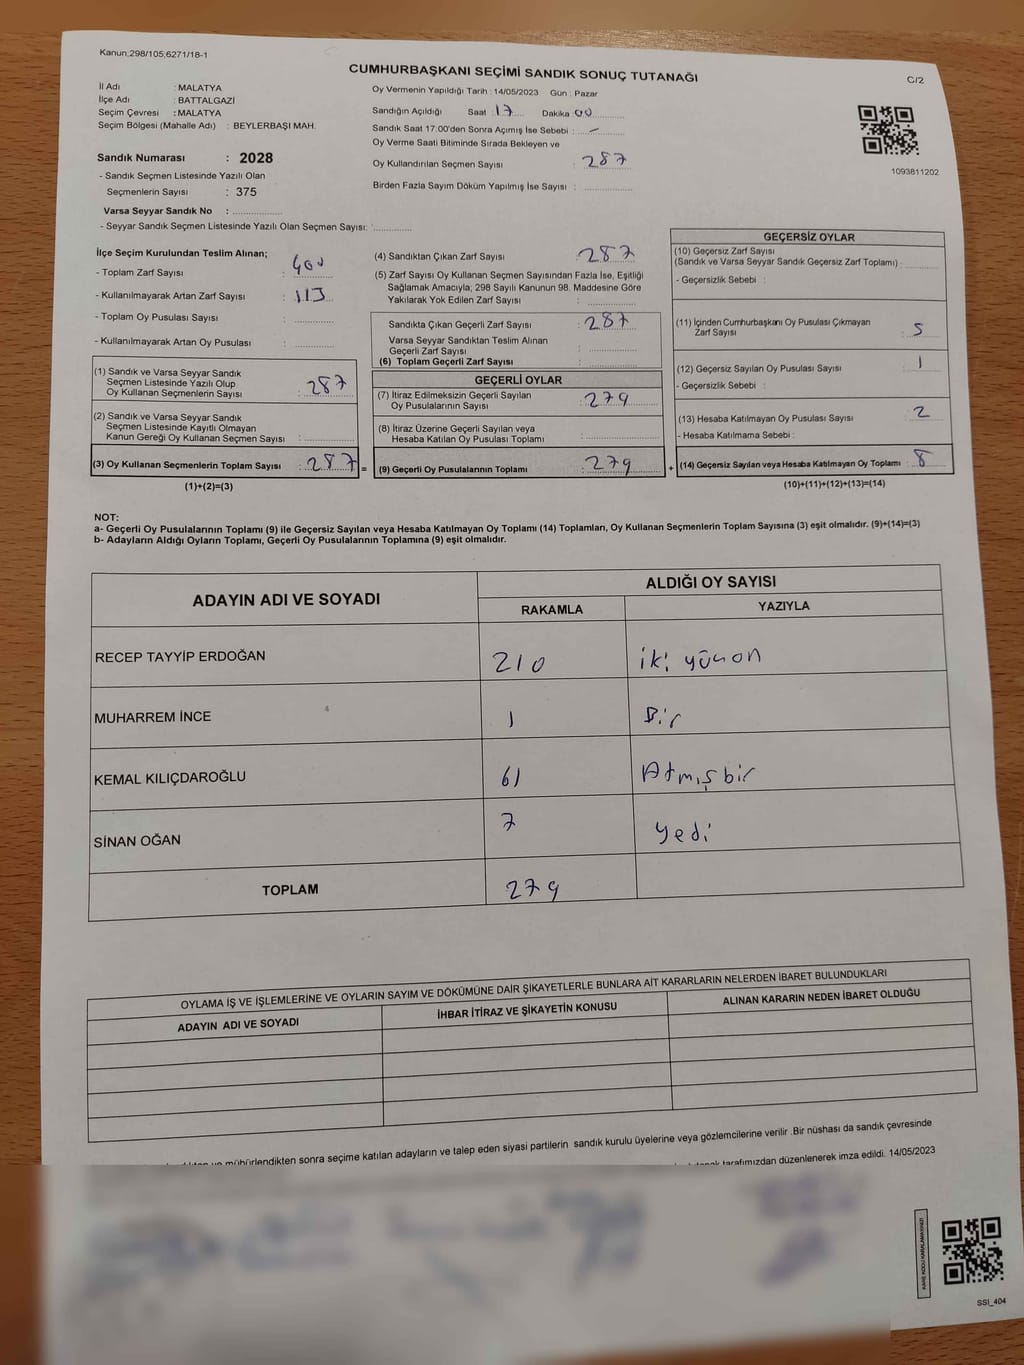 Kanun;298/105;6271/18-1
CUMHURBAŞKANI SEÇİMİ SANDIK SONUÇ TUTANAĞI
C/2
İl Adı : MALATYA
İlçe Adı : BATTALGAZİ
Seçim Çevresi : MALATYA
Seçim Bölgesi (Mahalle Adı) : BEYLERBAŞI MAH.
Sandık Numarası : 2028
- Sandık Seçmen Listesinde Yazılı Olan
Seçmenlerin Sayısı : 375
Varsa Seyyar Sandık No : ...............
- Seyyar Sandık Seçmen Listesinde Yazılı Olan Seçmen Sayısı: ............
Oy Vermenin Yapıldığı Tarih : 14/05/2023 Gün : Pazar
Sandığın Açıldığı Saat : 17 Dakika 00
Sandık Saat 17:00'den Sonra Açımış İse Sebebi : –
Oy Verme Saati Bitiminde Sırada Bekleyen ve
Oy Kullandırılan Seçmen Sayısı : 287
Birden Fazla Sayım Döküm Yapılmış İse Sayısı : ...............
1093811202
İlçe Seçim Kurulundan Teslim Alınan;
- Toplam Zarf Sayısı : 400
- Kullanılmayarak Artan Zarf Sayısı : 113
- Toplam Oy Pusulası Sayısı : ............
- Kullanılmayarak Artan Oy Pusulası : ............
(1) Sandık ve Varsa Seyyar Sandık
Seçmen Listesinde Yazılı Olup
Oy Kullanan Seçmenlerin Sayısı : 287
(2) Sandık ve Varsa Seyyar Sandık
Seçmen Listesinde Kayıtlı Olmayan
Kanun Gereği Oy Kullanan Seçmen Sayısı : ...............
(3) Oy Kullanan Seçmenlerin Toplam Sayısı : 287 =
(1)+(2)=(3)
(4) Sandıktan Çıkan Zarf Sayısı : 287
(5) Zarf Sayısı Oy Kullanan Seçmen Sayısından Fazla İse, Eşitliği
Sağlamak Amacıyla; 298 Sayılı Kanunun 98. Maddesine Göre
Yakılarak Yok Edilen Zarf Sayısı : ...............
Sandıkta Çıkan Geçerli Zarf Sayısı : 287
Varsa Seyyar Sandıktan Teslim Alınan
Geçerli Zarf Sayısı : ...............
(6) Toplam Geçerli Zarf Sayısı : ...............
GEÇERLİ OYLAR
(7) İtiraz Edilmeksizin Geçerli Sayılan
Oy Pusulalarının Sayısı : 279
(8) İtiraz Üzerine Geçerli Sayılan veya
Hesaba Katılan Oy Pusulası Toplamı : ...............
(9) Geçerli Oy Pusulalarının Toplamı : 279 +
GEÇERSİZ OYLAR
(10) Geçersiz Zarf Sayısı
(Sandık ve Varsa Seyyar Sandık Geçersiz Zarf Toplamı) : ............
- Geçersizlik Sebebi :
(11) İçinden Cumhurbaşkanı Oy Pusulası Çıkmayan
Zarf Sayısı : 5
(12) Geçersiz Sayılan Oy Pusulası Sayısı : 1
- Geçersizlik Sebebi :
(13) Hesaba Katılmayan Oy Pusulası Sayısı : 2
- Hesaba Katılmama Sebebi :
(14) Geçersiz Sayılan veya Hesaba Katılmayan Oy Toplamı : 8
(10)+(11)+(12)+(13)=(14)
NOT:
a- Geçerli Oy Pusulalarının Toplamı (9) ile Geçersiz Sayılan veya Hesaba Katılmayan Oy Toplamı (14) Toplamları, Oy Kullanan Seçmenlerin Toplam Sayısına (3) eşit olmalıdır. (9)+(14)=(3)
b- Adayların Aldığı Oyların Toplamı, Geçerli Oy Pusulalarının Toplamına (9) eşit olmalıdır.
ADAYIN ADI VE SOYADI ALDIĞI OY SAYISI
RAKAMLA YAZIYLA
RECEP TAYYİP ERDOĞAN 210 iki yüzon
MUHARREM İNCE 1 Bir
KEMAL KILIÇDAROĞLU 61 Atmışbir
SİNAN OĞAN 7 yedi
TOPLAM 279
OYLAMA İŞ VE İŞLEMLERİNE VE OYLARIN SAYIM VE DÖKÜMÜNE DAİR ŞİKAYETLERLE BUNLARA AİT KARARLARIN NELERDEN İBARET BULUNDUKLARI
ADAYIN ADI VE SOYADI İHBAR İTİRAZ VE ŞİKAYETİN KONUSU ALINAN KARARIN NEDEN İBARET OLDUĞU
mühürlendikten sonra seçime katılan adayların ve talep eden siyasi partilerin sandık kurulu üyelerine veya gözlemcilerine verilir .Bir nüshası da sandık çevresinde
tarafımızdan düzenlenerek imza edildi. 14/05/2023
KARE KODU KARALAMAYINIZ!
SSI_404